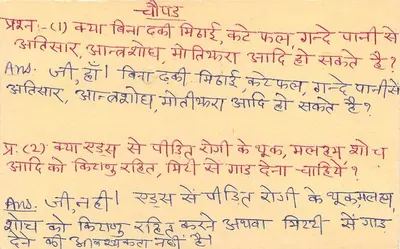 चौपड
प्रश्न:-(1) क्या बिना ढकी मिठाई, कटे फल, गन्दे पानी से
अतिसार, आन्त्रशोध, मोतिझरा आदि हो सकते है?
Ans. जी, हाँ। बिना ढकी मिठाई, कटे फल, गन्दे पानी से
अतिसार, आन्त्रशोध, मोतीझरा आदि हो सकते है?
प्र: (2) क्या एड्स से पीडित रोगी के थूक, मलमूत्र, शोच
आदि को किटाणु रहित, मिटी से गाड देना चाहिये?
Ans. जी, नही। एड्स से पीडित रोगी के थूक,
शोच को किटाणु रहित करने अथवा मिटटी में गाड
देने की आवश्यकता नही है।